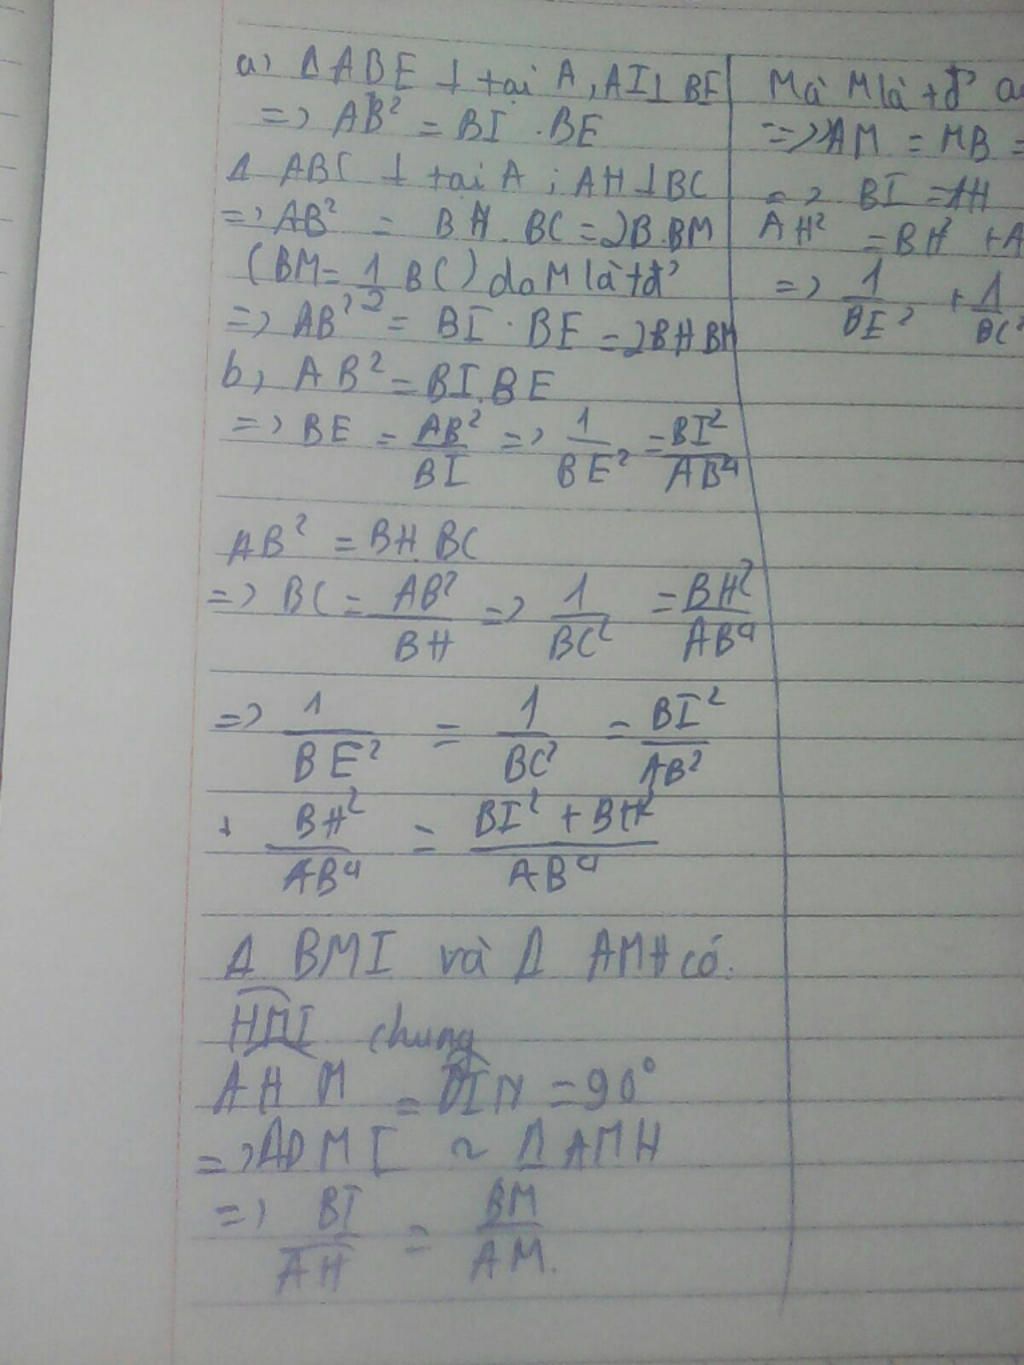 a, Δ ABE ⊥ tại A, AI ⊥ BE
=> AB² = BI . BE
Δ ABC ⊥ tại A ; AH ⊥ BC
=> AB² = BH . BC = 2B.BM
(BM = 1/2 BC) do M là tđ²
=> AB² = BI . BE = 2BH BM
b, AB² = BI.BE
=> BE = AB²/BI => 1/BE² = BI²/AB⁴
AB² = BH.BC
=> BC = AB²/BH => 1/BC² = BH²/AB⁴
=> 1/BE² = 1/BC² = BI²/AB²
+ BH²/AB⁴ = (BI² + BH²)/AB⁴
Δ BMI và Δ AMH có:
HMI chung
AHM = BIM = 90°
=> Δ BMI ~ Δ AMH
=> BI/AH = BM/AM.
Mà M là tđ²
=> AM = MB =
=> BI = AH
AH² = BH² +
=> 1/BE² + 1/BC²